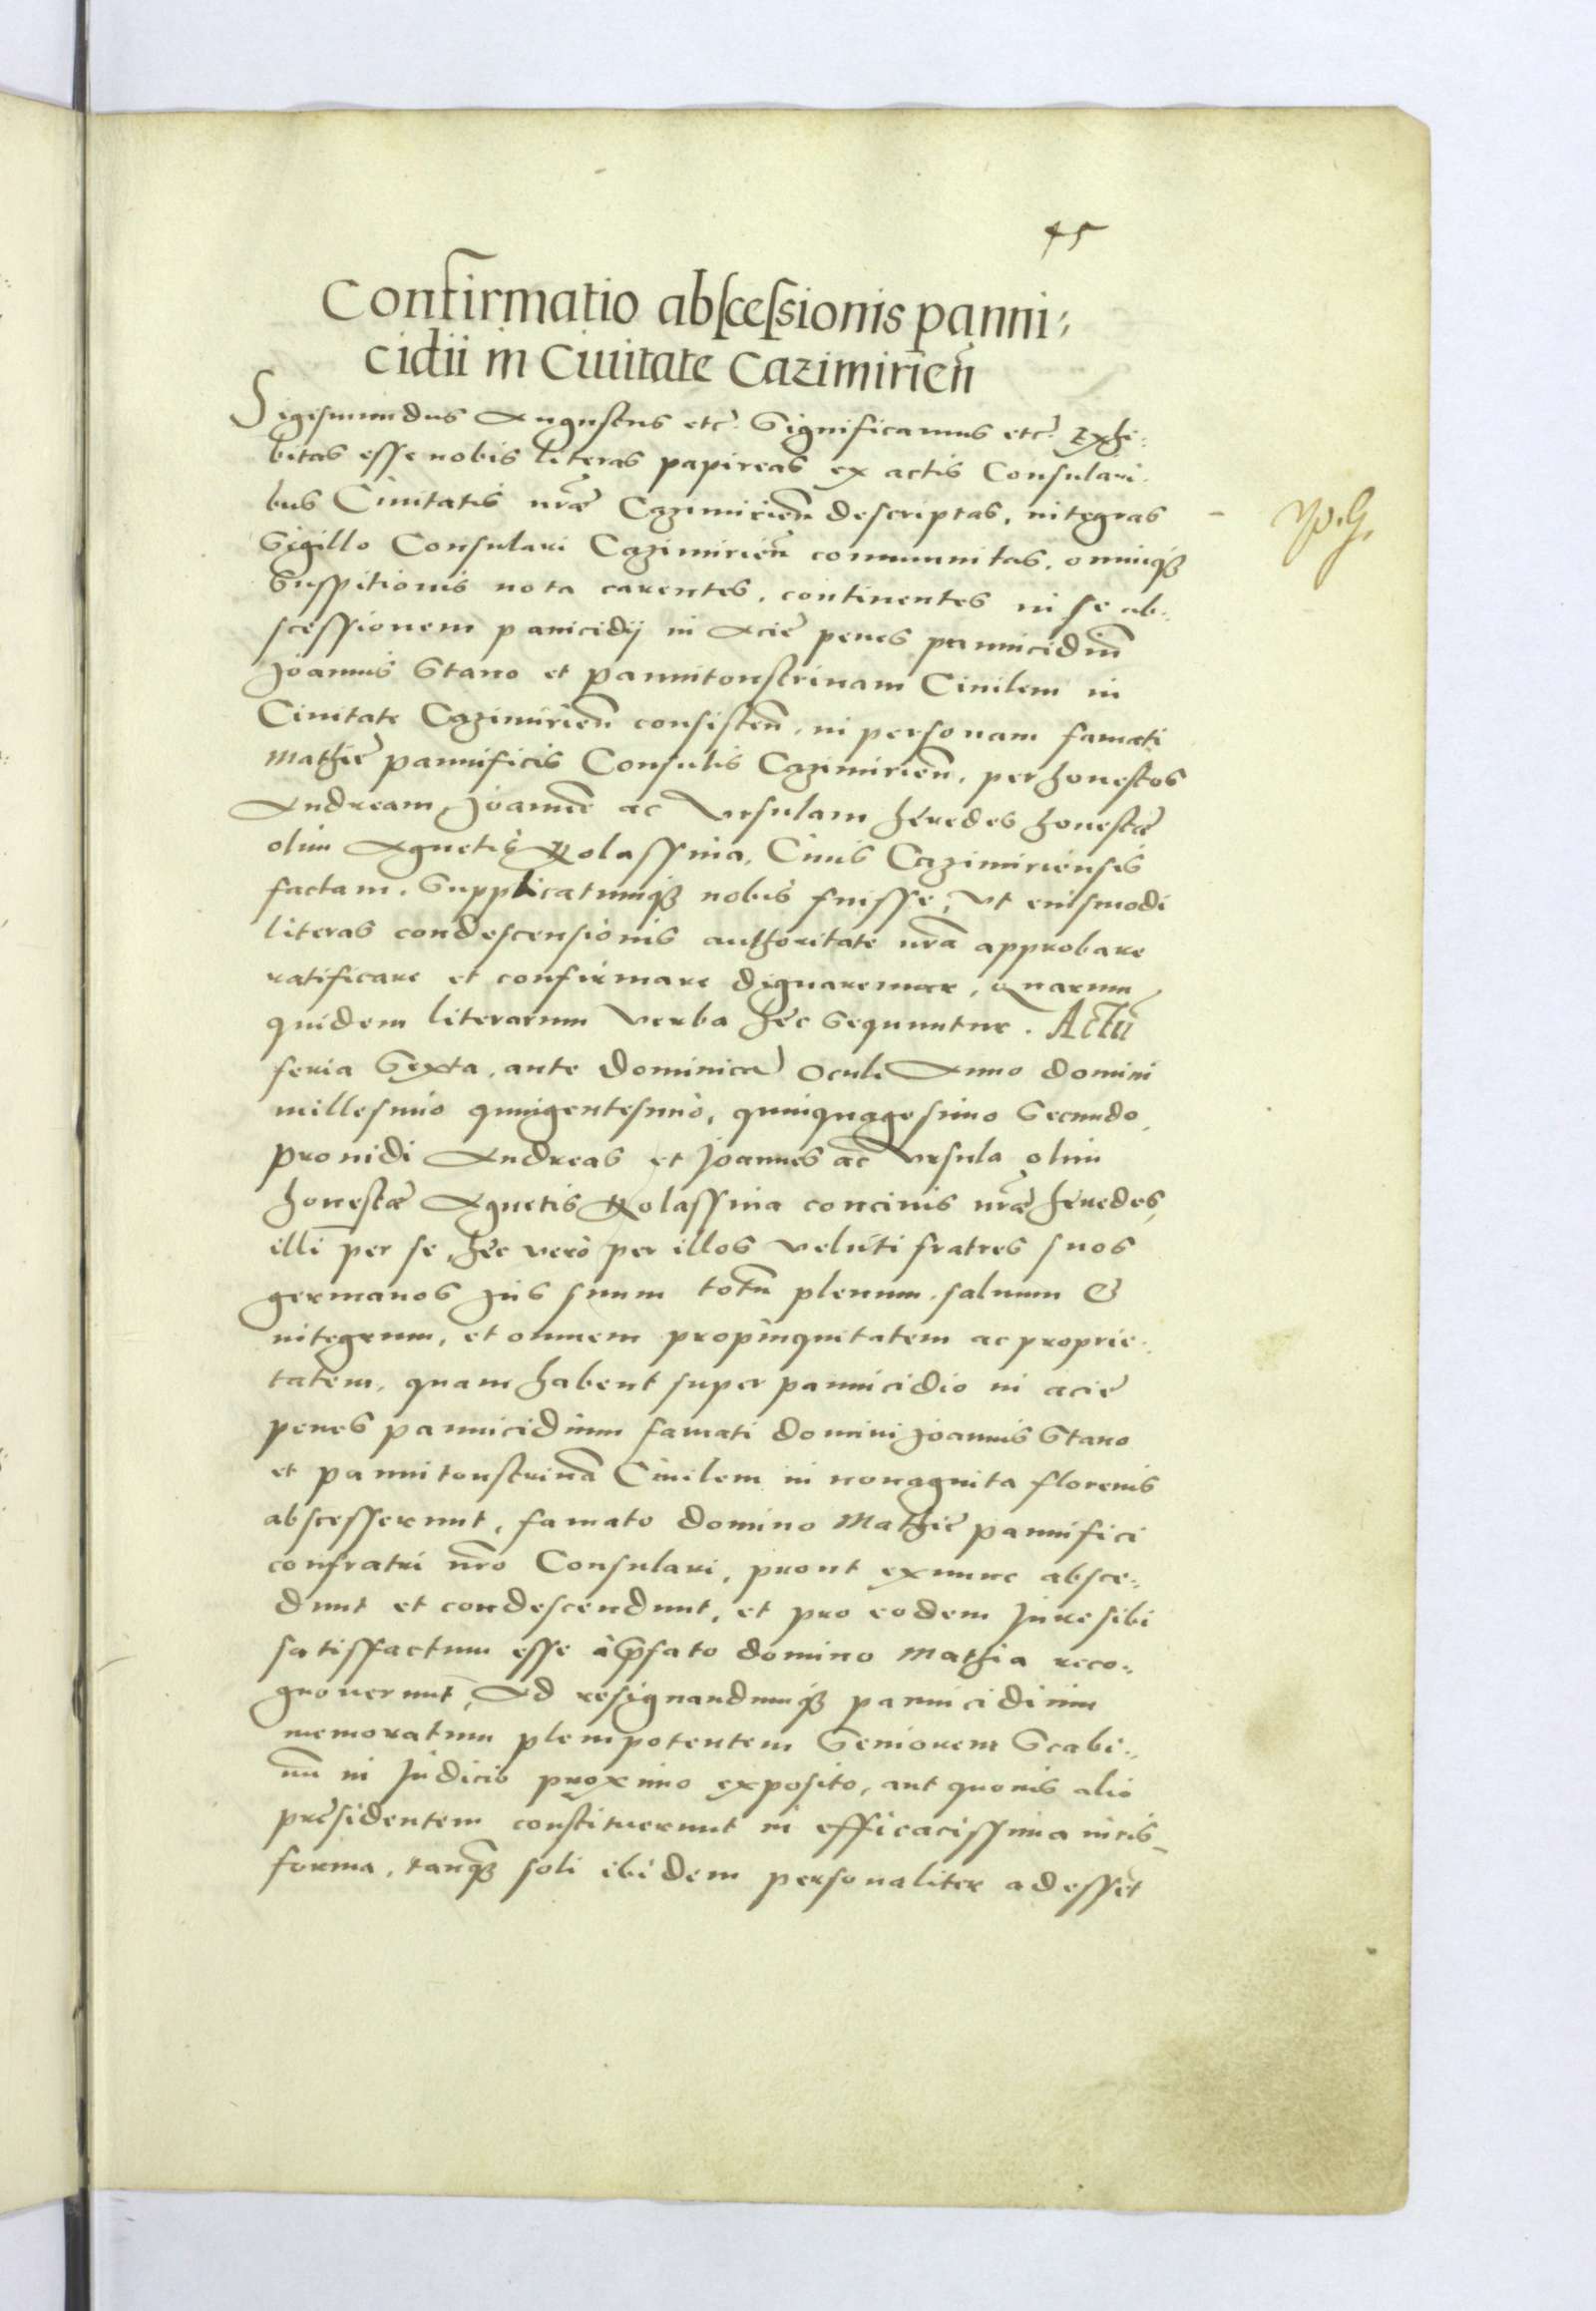 45
Confirmatio abscessionis panni⸗
cidii in Ciuitate Cazimirien̄
Sigismundus Augustus etc̄. Significamus etc̄. Exhi⸗
bitas esse nobis literas papireas ex actis Consulari⸗
bus Ciuitatis nr̄æ Cazimirien̄ descriptas, integras
Sigillo Consulari Cazimirien̄ communitas, omniqꝫ
Suspitionis nota carentes, continentes in se ab⸗
scessionem panicidij in Acie penes pannicidiū
Joannis Stano et pannitonstrinam Ciuilem in
Ciuitate Cazimirien̄ consisten̄, in personam famati
Mathię pannificis Consulis Cazimirien̄, per honestos
Andream, Joannē ac Vrsulam hęredes honestæ
olim Agnetis Rolassina, Ciuis Cazimiriensis
factam. Supplicatumqꝫ nobis fuisse, Vt eiusmodi
literas condescensionis authoritate nr̄a approbare
ratificare et confirmare dignaremur, Quarum
quidem literarum Verba hęc sequuntur. Actū
feria Sexta, ante dominicā Oculi Anno domini
millesimo quingentesimo, quinquagesimo Secundo,
prouidi Andreas et Joannes ac Vrsula olim
honestæ Agnetis Rolassina conciuis nr̄æ hęredes,
illi per se, hęc verò per illos veluti fratres suos
germanos Jus suum totū plenum, saluum &
integrum, et omnem propinquitatem ac proprie⸗
tatem, quam habent super pannicidio in acie
penes pannicidium famati domini Joannis Stano
et pannitonstrinā Ciuilem in nonaginta florenis
abscesserunt, famato domino Mathię pannifici
confratri nr̄o Consulari, prout exnunc absce⸗
dunt et condescendunt, et pro eodem Jure sibi
satisfactum esse à p̄fato domino Mathia reco⸗
gnouerunt, Ad resignandumqꝫ pannicidium
memoratum plenipotentem Seniorem Scabi⸗
nū in Judicio proximo exposito, aut quouis alio
pręsidentem constituerunt in efficacissima iuris
forma, tanqꝫ soli ibidem personaliter adessēt